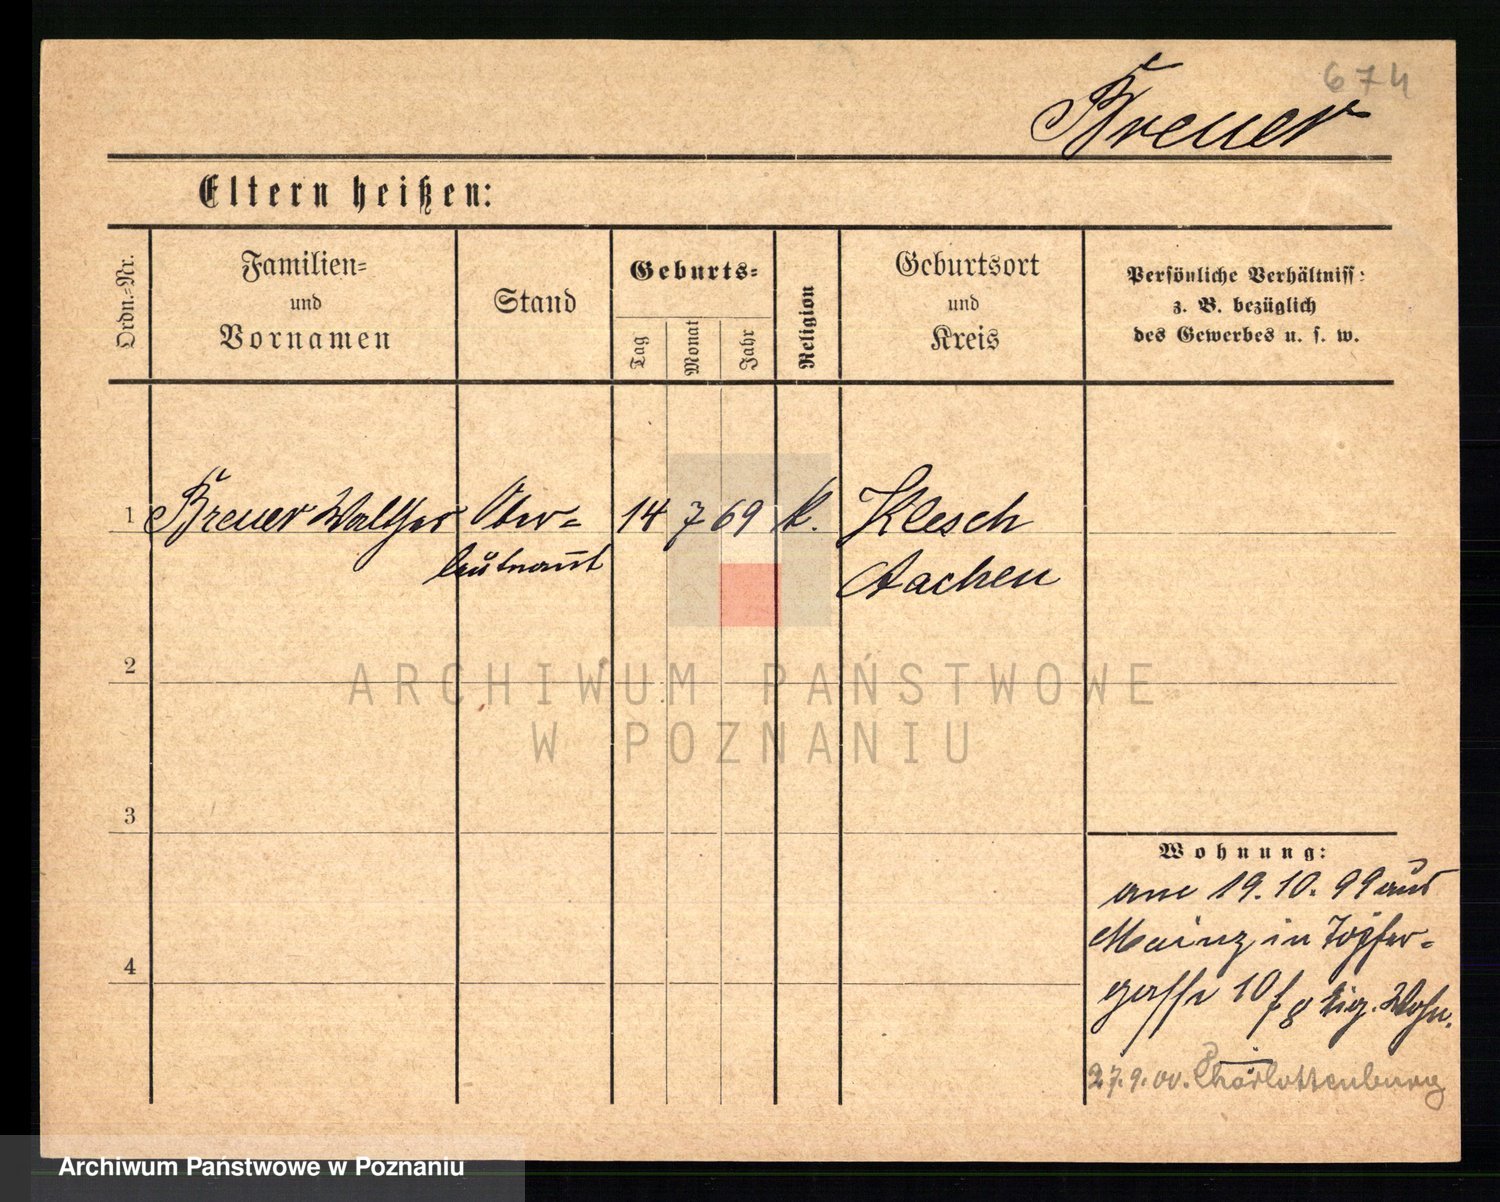 674
Breuer
Eltern heißen:
Ordn.-Nr.
Familien-
und
Vornamen
Stand
Geburts-
Tag
Monat
Jahr
Religion
Geburtsort
und
Kreis
Persönliche Verhältniss:
z. B. bezüglich
des Gewerbes u. s. w.
1 Breuer Walther Ober- 14 7 69 k. Klesch
leutnant Aachen
2
ARCHIWUM PAŃSTWOWE
W POZNANIU
3
Wohnung:
am 19.10.99 aus
Mainz in Töpfer-
4
gasse 10 Wohn.
27.9.00. Charlottenburg
Archiwum Państwowe w Poznaniu